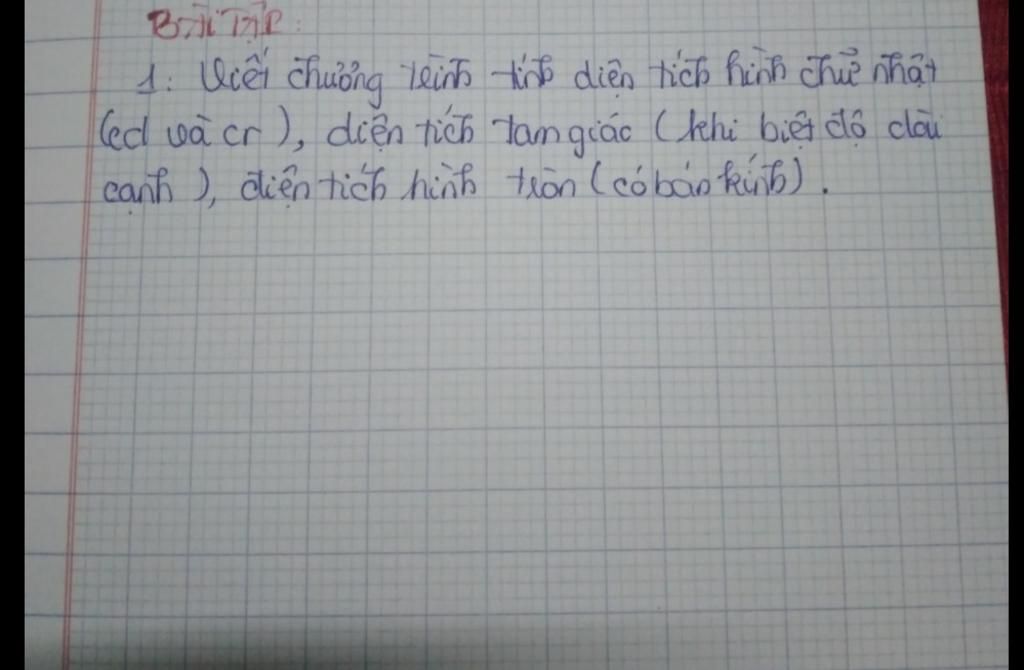 BÀI TẬP:
1: Viết chương trình tính diện tích hình chữ nhật
(cd và cr), diện tích tam giác (khi biết độ dài
cạnh), diện tích hình tròn (có bán kính).